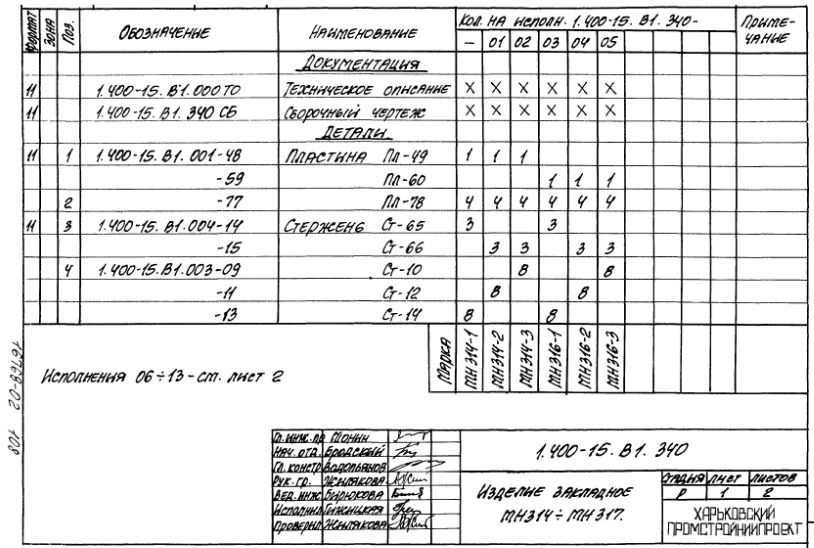 Формат Зона Поз. Обозначение Наименование Кол. на исполн. 1.400-15. В1. 340- Примечание
– 01 02 03 04 05
Документация
11 1.400-15. В1. 000 ТО Техническое описание X X X X X X
11 1.400-15. В1. 340 СБ Сборочный чертеж X X X X X X
Детали
11 1 1.400-15. В1. 001-48 Пластина Пл-49 1 1 1
-59 Пл-60 1 1 1
2 -77 Пл-78 4 4 4 4 4 4
11 3 1.400-15. В1.004-14 Стержень Ст-65 3 3
-15 Ст-66 3 3 3 3
4 1.400-15.В1.003-09 Ст-10 8 8
-11 Ст-12 8 8
-13 Ст-14 8 8
Марка МН314-1 МН314-2 МН314-3 МН316-1 МН316-2 МН316-3
Исполнения 06÷13 - см. лист 2
108
Гл. инж. пр
Нач. отд. Бродский
Гл. констр Водопьянов
Рук. гр. Жилякова
Вед. инж Бирюкова
Исполнил
Проверил Жилякова
1.400-15. В1. 340
Изделие закладное
МН314÷МН317.
Стадия Лист Листов
Р 1 2
ХАРЬКОВСКИЙ
ПРОМСТРОЙНИИПРОЕКТ